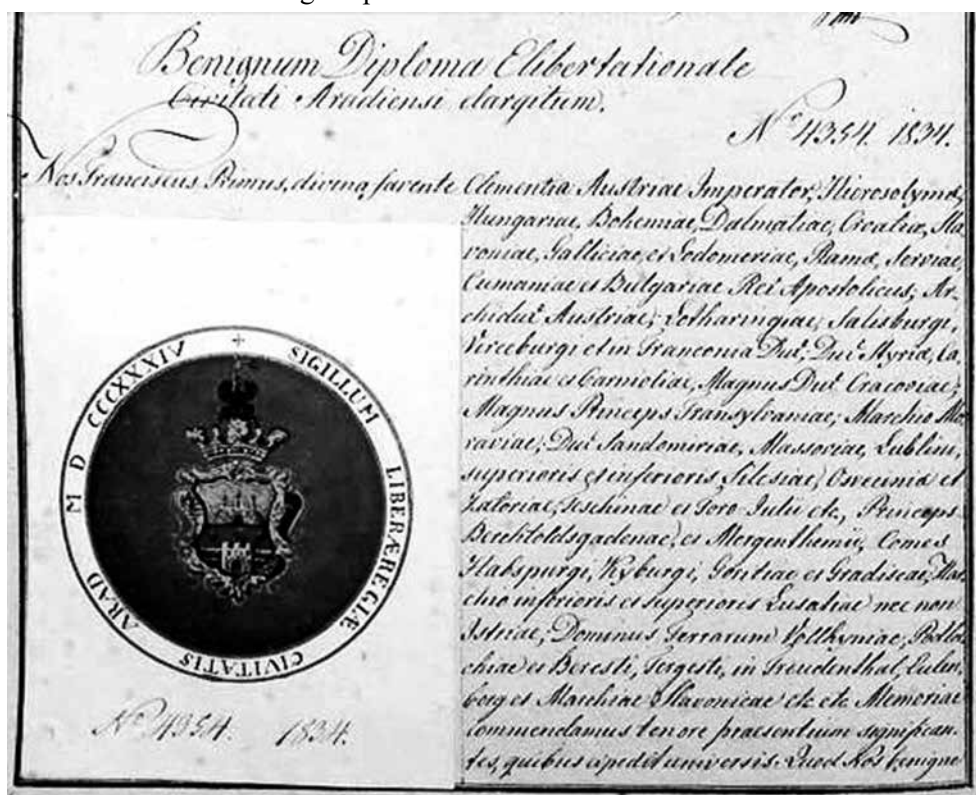 Benignum Diploma Elibertationale
Civitati Aradiensi elargitum.
Nº 4354. 1834.
Nos Franciscus Primus, divina favente Clementia Austriae Imperator, Hierosolymae,
Hungariae, Bohemiae, Dalmatiae, Croatiae, Sla
voniae, Galliciae, et Lodomeriae, Ramae, Serviae,
Cumaniae et Bulgariae Rex Apostolicus; Ar-
chidux Austriae; Lotharingiae, Salisburgi,
Virceburgi et in Franconia Dux; Dux Styriae, Ca
rinthiae et Carnioliae, Magnus Dux Cracoviae;
Magnus Princeps Transylvaniae; Marchio Mo
raviae; Dux Sandomiriae, Massoviae, Lublini,
superioris et inferioris Silesiae, Osveciniae et
Zatoriae, Teschinae et Foro Julii etc, Princeps
Berchtoldsgadenae, et Mergenthemii, Comes
Habspurgi, Kyburgi, Goritiae et Gradiscae, Mar
chio inferioris et superioris Lusatiae nec non
Istriae; Dominus Terrarum Volhyniae, Podla
chiae et Beresti, Tergesti, in Freudenthal, Eulen
berg et Marchiae Slavonicae etc etc Memoriae
commendamus tenore praesentium significan.
tes, quibus expedit universis. Quod Nos benigne
+ SIGILLUM LIBERÆ REGIÆ CIVITATIS ARAD M D CCCXXXIV
Nº 4354. 1834.